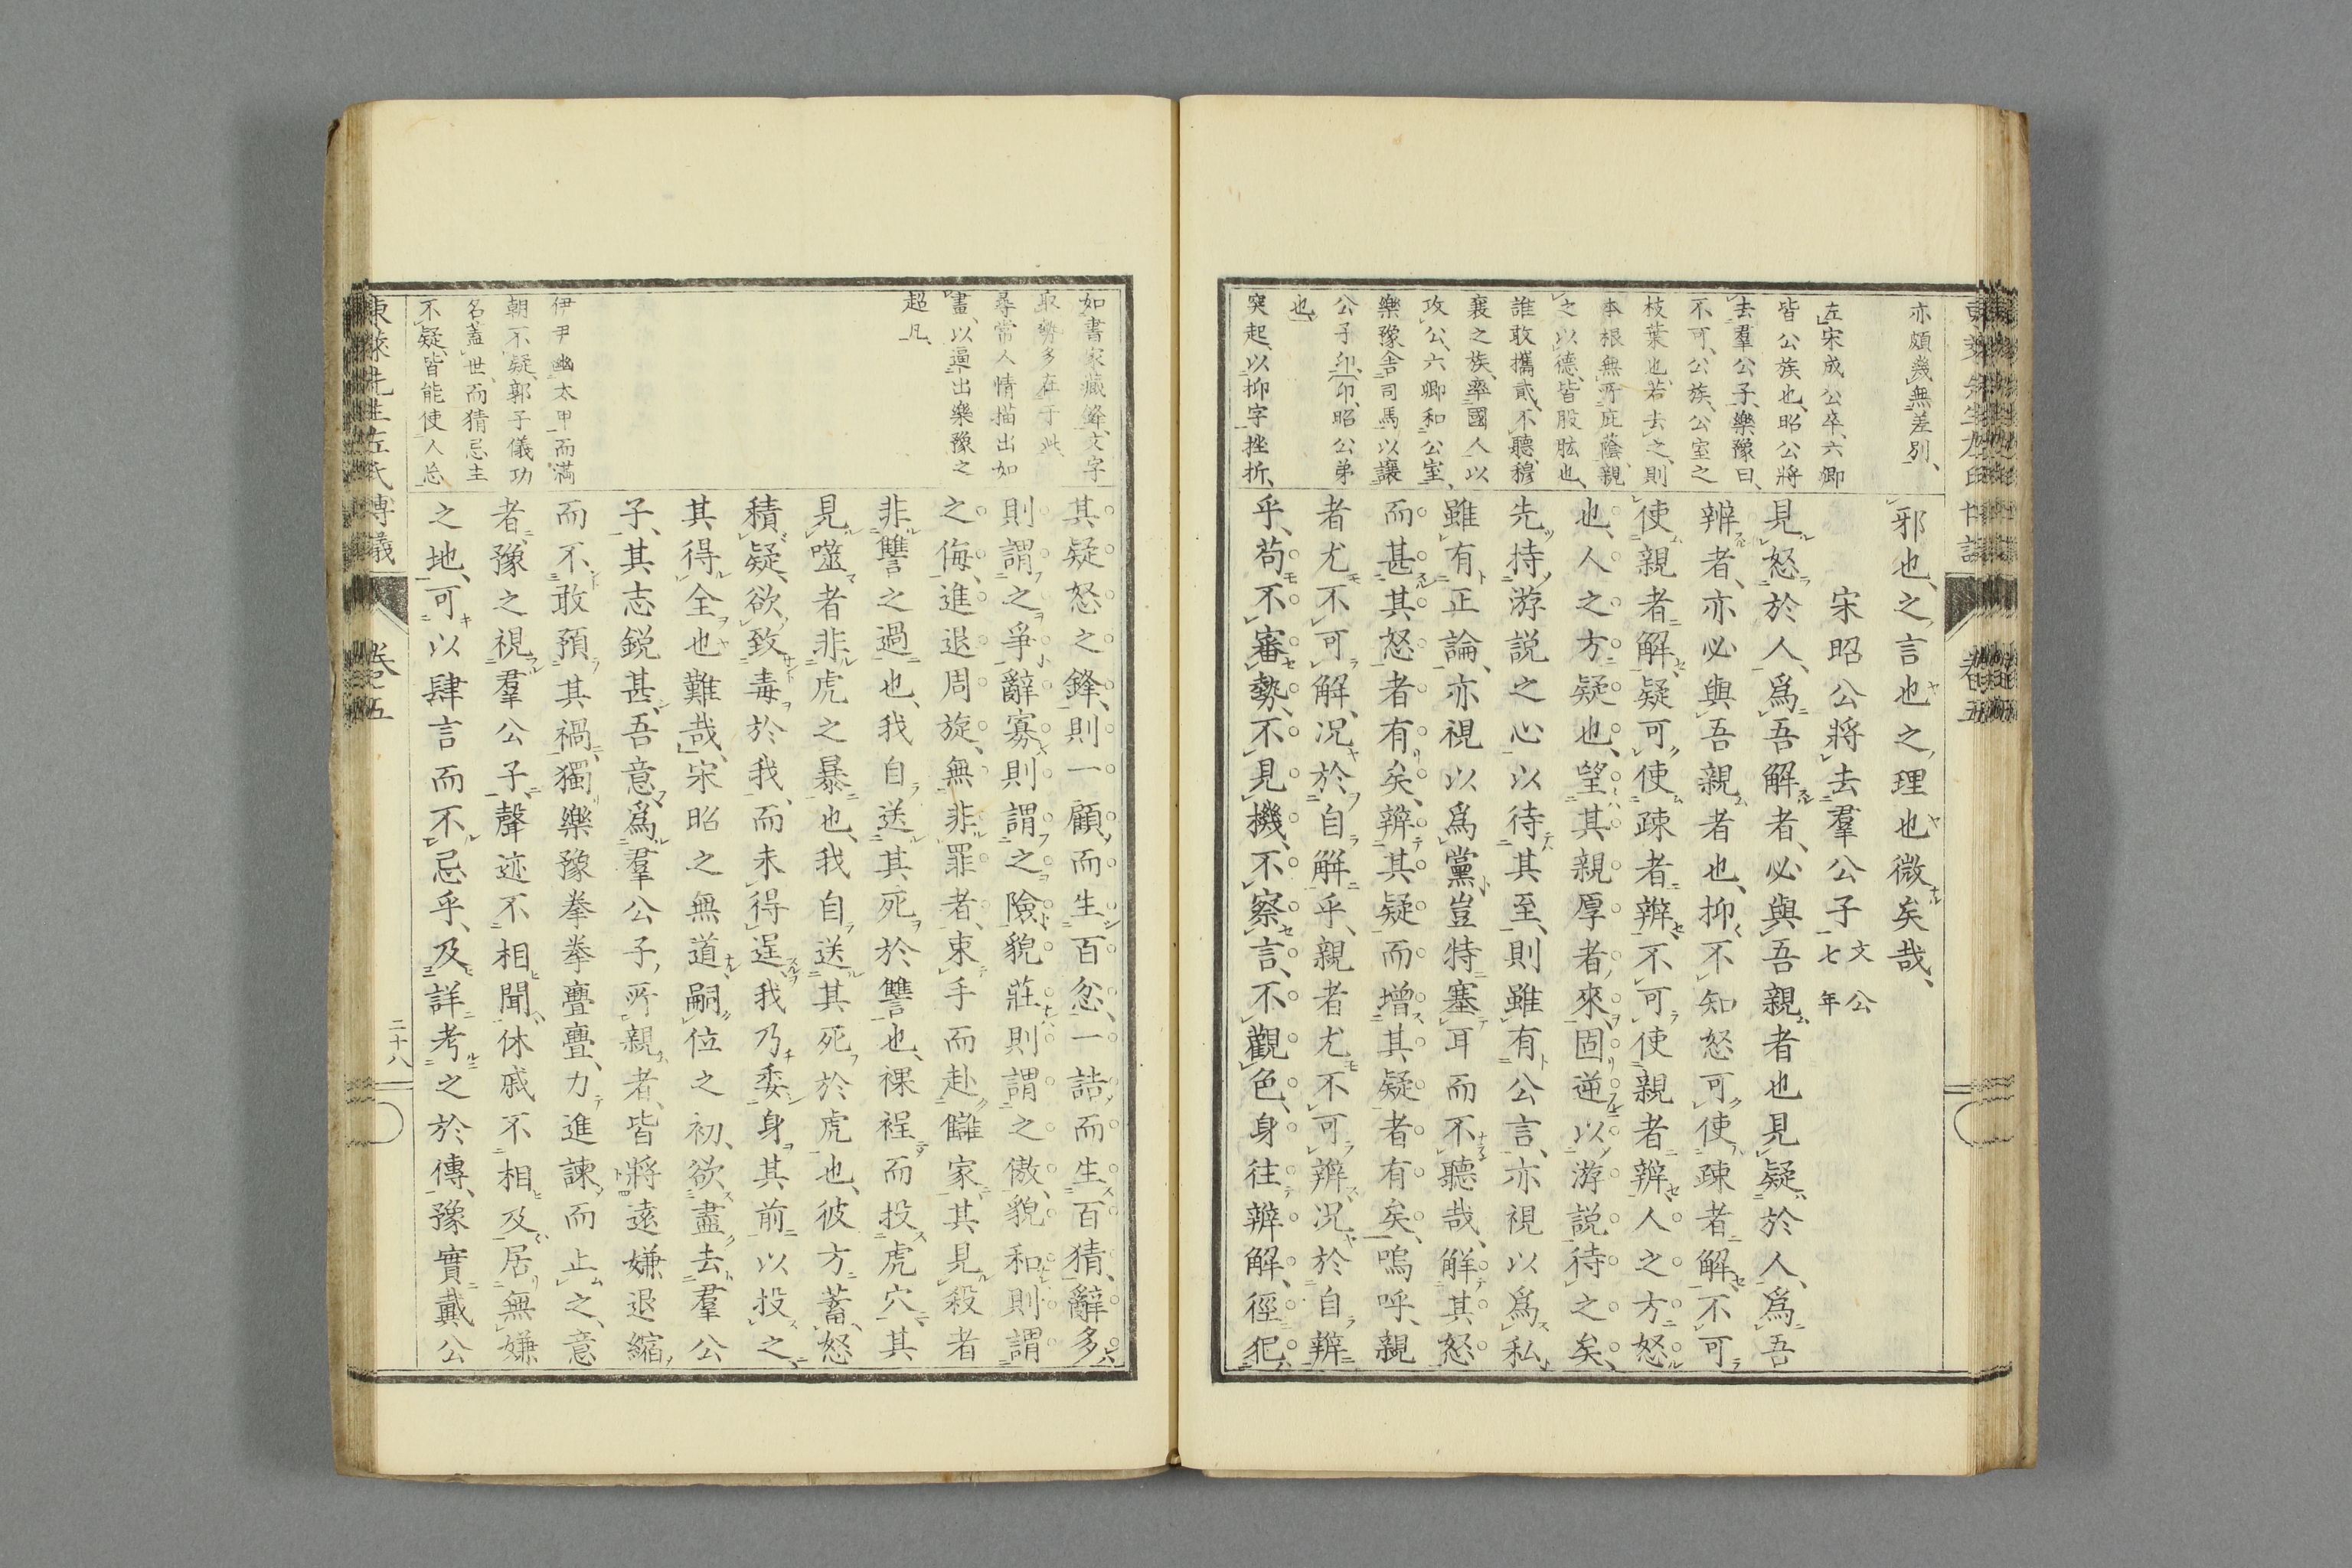 亦頗幾無差別、
左宋成公卒、六卿
皆公族也、昭公將
去羣公子、樂豫曰、
不可、公族、公室之
枝葉也、若去之、則
本根無所庇蔭、親
之以德、皆股肱也、
誰敢攜貳、不聽、穆
襄之族、率國人以
攻公、六卿和公室、
樂豫舍司馬以讓
公子卬、卬、昭公弟
也、
突起、以抑字挫折、
邪也、之言也之理也微矣哉、
宋昭公將去羣公子 文公七年
見怒於人、爲吾解者、必與吾親者也見疑於人、爲吾
辨者、亦必與吾親者也、抑不知怒可使疎者解、不可
使親者解、疑可使疎者辨、不可使親者辨、人之方怒
也、人之方疑也、望其親厚者來、固逆以游説待之矣、
先持游説之心以待其至、則雖有公言、亦視以爲私、
雖有正論、亦視以爲黨、豈特塞耳而不聽哉、解其怒
而甚其怒者有矣、辨其疑而增其疑者有矣、嗚呼、親
者尤不可解、况於自解乎、親者尤不可辨、况於自辨
乎、苟不審勢、不見機、不察言、不觀色、身往辨解、徑犯
如書家藏鋒、文字
取勢多在于此、
尋常人情描出如
畫、以逼出樂豫之
超凡、
伊尹幽太甲而滿
朝不疑、郭子儀功
名蓋世、而猜忌主
不疑、皆能使人忘
其疑怒之鋒、則一顧而生百忿、一詰而生百猜、辭多
則謂之爭、辭寡則謂之險、貌莊則謂之傲、貌和則謂
之侮、進退周旋、無非罪者、束手而赴讎家、其見殺者
非讐之過也、我自送其死於讐也、裸裎而投虎穴、其
見噬者非虎之暴也、我自送其死於虎也、彼方蓄怒
積疑、欲致毒於我、而未得逞、我乃委身其前以投之、
其得全也難哉、宋昭之無道、嗣位之初、欲盡去羣公
子、其志鋭甚、吾意爲羣公子所親者、皆將遠嫌退縮
而不敢預其禍、獨樂豫拳拳亹亹、力進諫而止之、意
者豫之視羣公子、聲迹不相聞、休戚不相及、居無嫌
之地、可以肆言而不忌乎、及詳考之於傳、豫實戴公
東萊先生左氏博議
卷之五
二十八